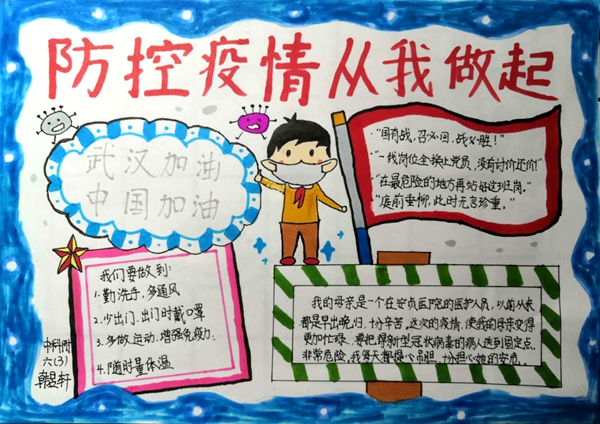 防控疫情从我做起
武汉加油
中国加油
"国有战,召必回,战必胜!"
"一线岗位全换上党员,没有讨价还价!"
"在最危险的地方再站好这班岗。"
"庭前垂柳,此时无言珍重。"
我们要做到:
1.勤洗手,多通风
2.少出门,出门时戴口罩
3.多做运动,增强免疫力
4.随时量体温
我的母亲是一个在安贞医院的医护人员,以前从来
都是早出晚归,十分辛苦,这次的疫情,使我的母亲变得
更加忙碌,要把得新型冠状病毒的病人送到固定点.
非常危险,我每天都提心吊胆,十分担心她的安危。
中科附
六(3)
韩
轩